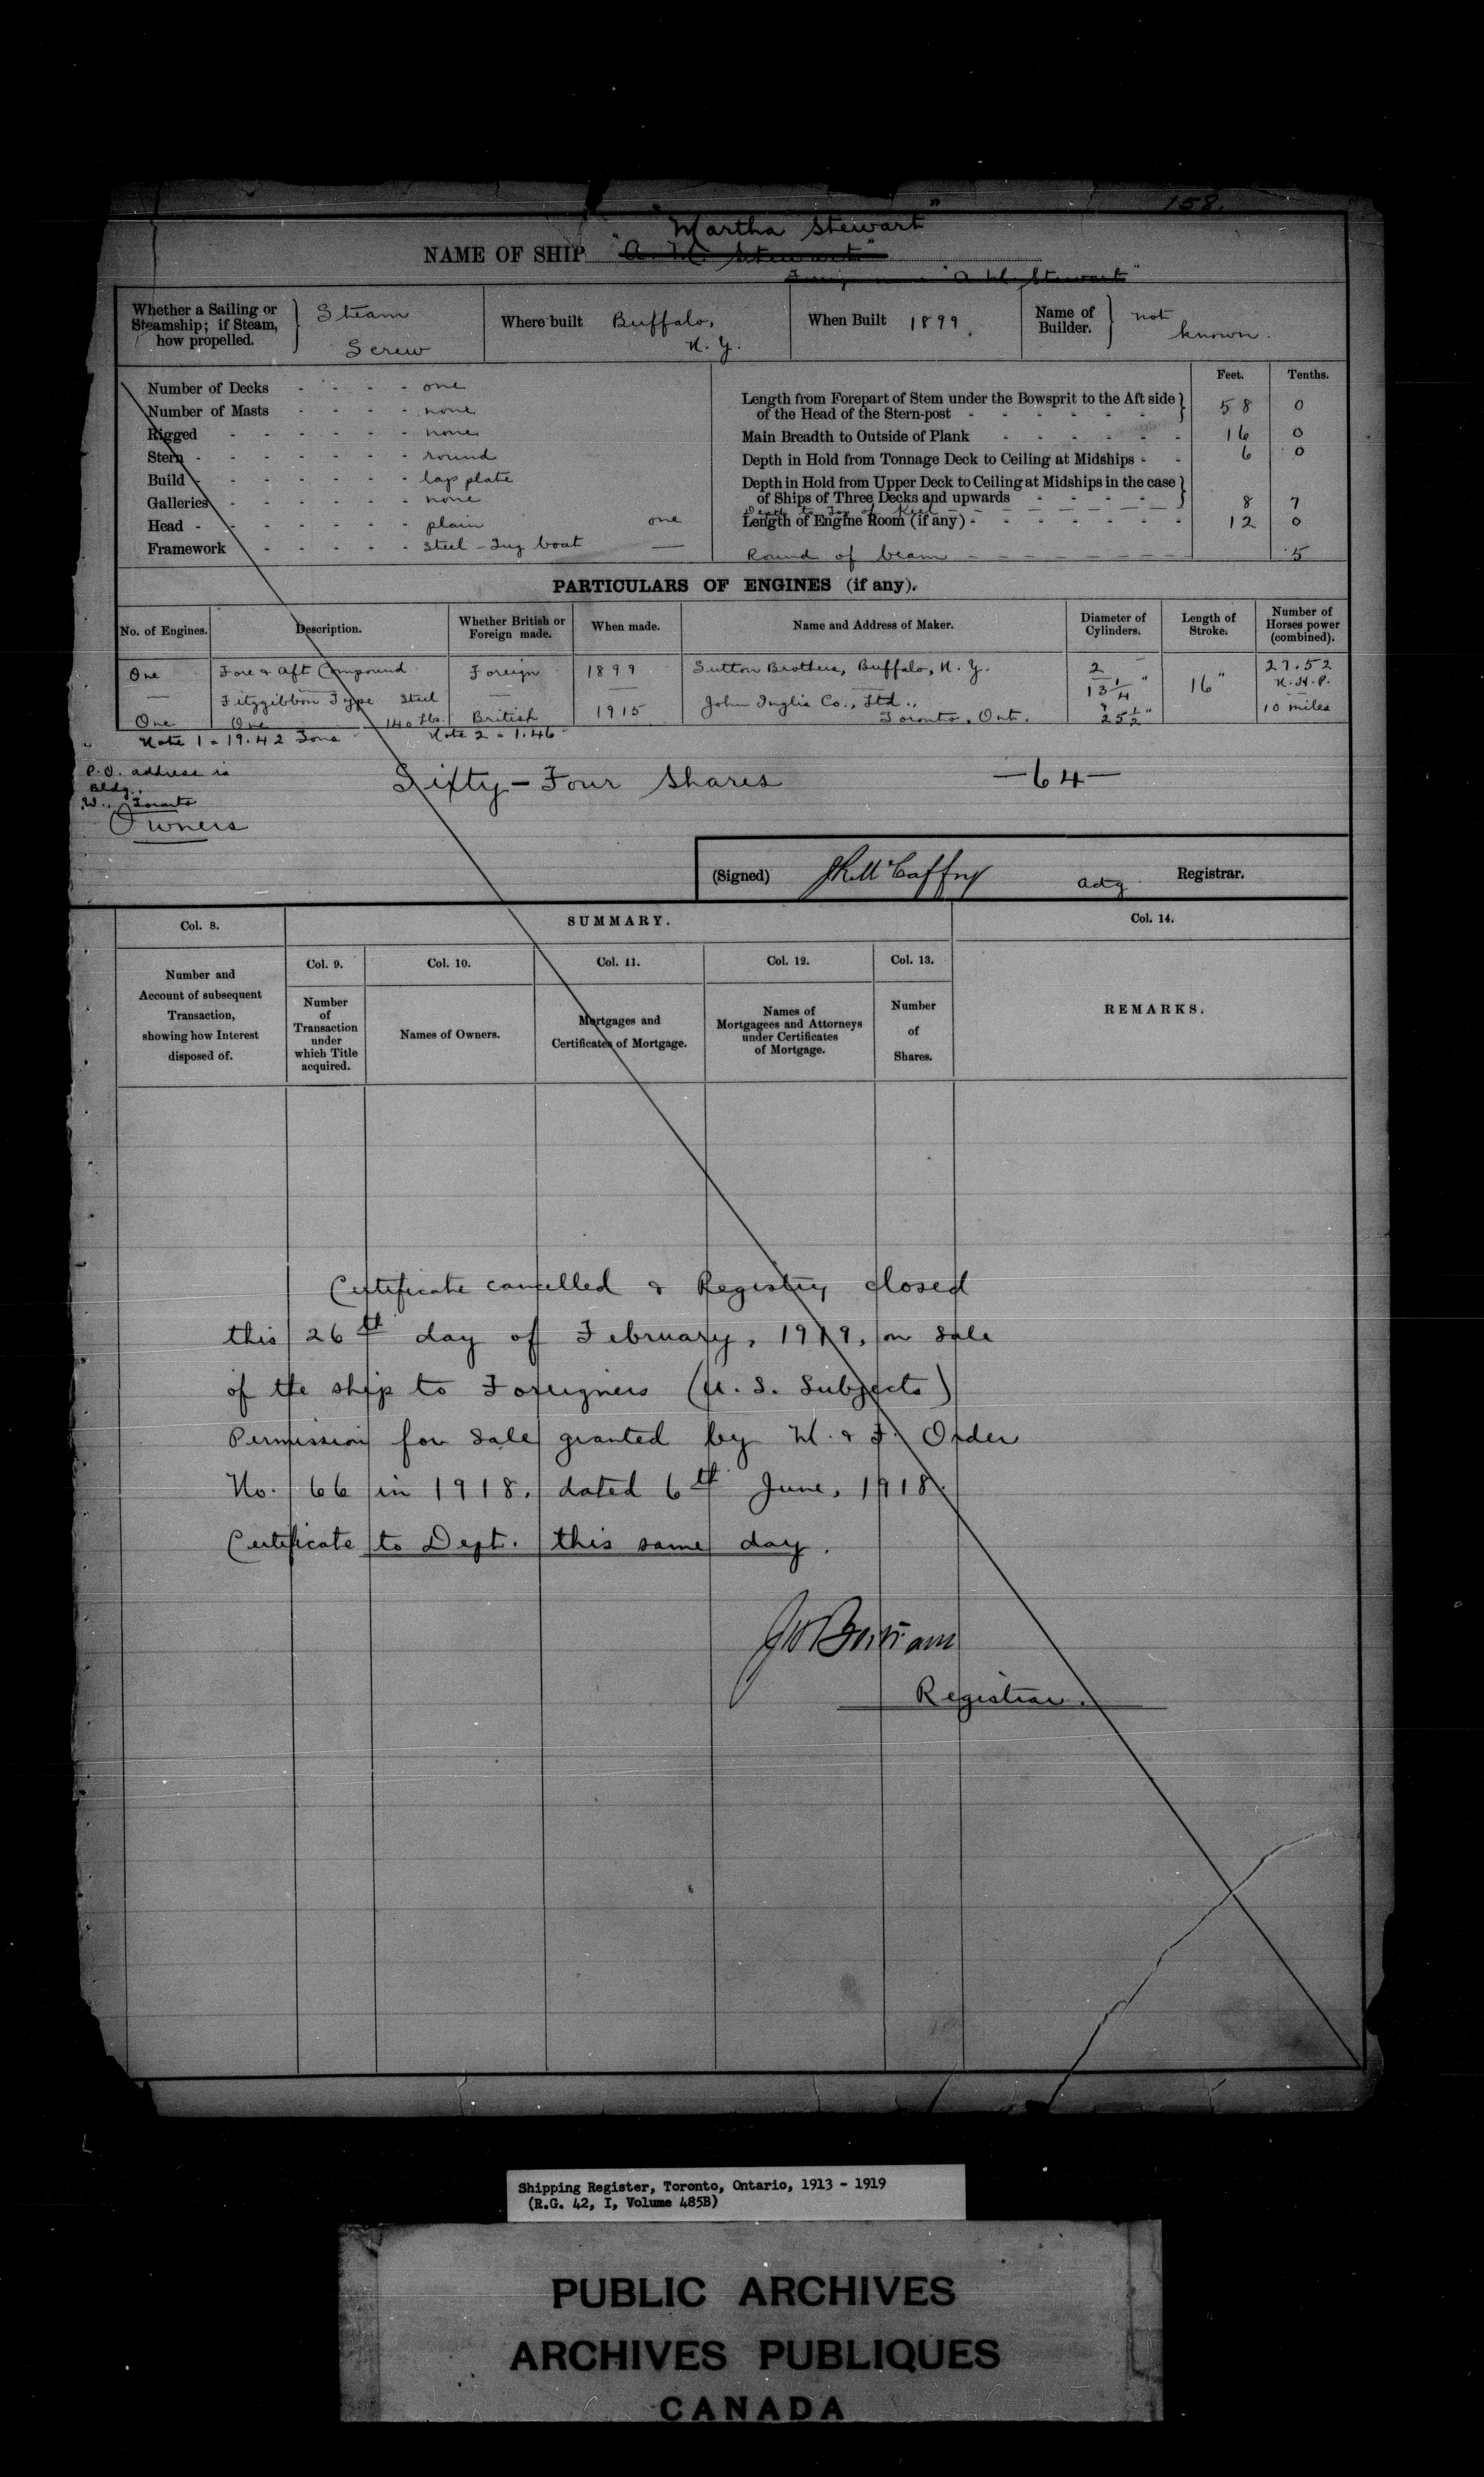 158.
"Martha Stewart"
NAME OF SHIP "A. M. Stewart"
"A. M. Stewart"
Whether a Sailing or Steamship; if Steam, how propelled. } Steam Screw
Where built Buffalo, N. Y.
When Built 1899.
Name of Builder. } not known.
Number of Decks - - - - one
Number of Masts - - - - none
Rigged - - - - - - none
Stern - - - - - - - round
Build - - - - - - - lap plate
Galleries - - - - - - none
Head - - - - - - - plain one
Framework - - - - - steel - Tug boat —
Feet. Tenths.
Length from Forepart of Stem under the Bowsprit to the Aft side
of the Head of the Stern-post - - - - - - } 58 0
Main Breadth to Outside of Plank - - - - - - 16 0
Depth in Hold from Tonnage Deck to Ceiling at Midships - - 6 0
Depth in Hold from Upper Deck to Ceiling at Midships in the case
of Ships of Three Decks and upwards - - - - - }
Depth to Top of Keel - - - 8 7
Length of Engine Room (if any) - - - - - - - 12 0
Round of beam - - - - - - - .5
PARTICULARS OF ENGINES (if any).
No. of Engines. Description. Whether British or Foreign made. When made. Name and Address of Maker. Diameter of Cylinders. Length of Stroke. Number of Horses power (combined).
One Fore & Aft Compound Foreign 1899 Sutton Brothers, Buffalo, N. Y. 2 27.52
— Fitzgibbon Type Steel — — 13 1/4" 16" N. H. P.
One One 140 Lbs. British 1915 John Inglis Co., Ltd., Toronto, Ont. & 25 1/2" 10 miles
Note 1 = 19.42 Tons Note 2 = 1.46
P.O. address is
Bldg.,
W., Toronto
Sixty-Four Shares —64—
Owners
(Signed) JRMcCaffry actg Registrar.
Col. 8. SUMMARY. Col. 14.
Number and Account of subsequent Transaction, showing how Interest disposed of.
Col. 9. Col. 10. Col. 11. Col. 12. Col. 13.
Number of Transaction under which Title acquired.
Names of Owners.
Mortgages and Certificates of Mortgage.
Names of Mortgagees and Attorneys under Certificates of Mortgage.
Number of Shares.
REMARKS.
Certificate cancelled & Registry closed
this 26th day of February, 1919, on sale
of the ship to Foreigners (U. S. Subjects)
Permission for sale granted by M. & F. Order
No. 66 in 1918, dated 6th June, 1918.
Certificate to Dept. this same day.
Registrar.
Shipping Register, Toronto, Ontario, 1913 - 1919
(R.G. 42, I, Volume 485B)
PUBLIC ARCHIVES
ARCHIVES PUBLIQUES
CANADA